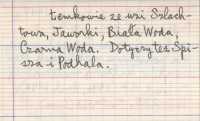 Łemkowie ze wsi Szlach-
towa, Jaworki, Biała Woda,
Czarna Woda. Dotyczy też Spi-
sza i Podhala.